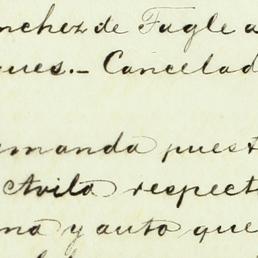 nchez de Tagle a
ques.- Cancelad
emanda puest
Avila respect
na y auto que